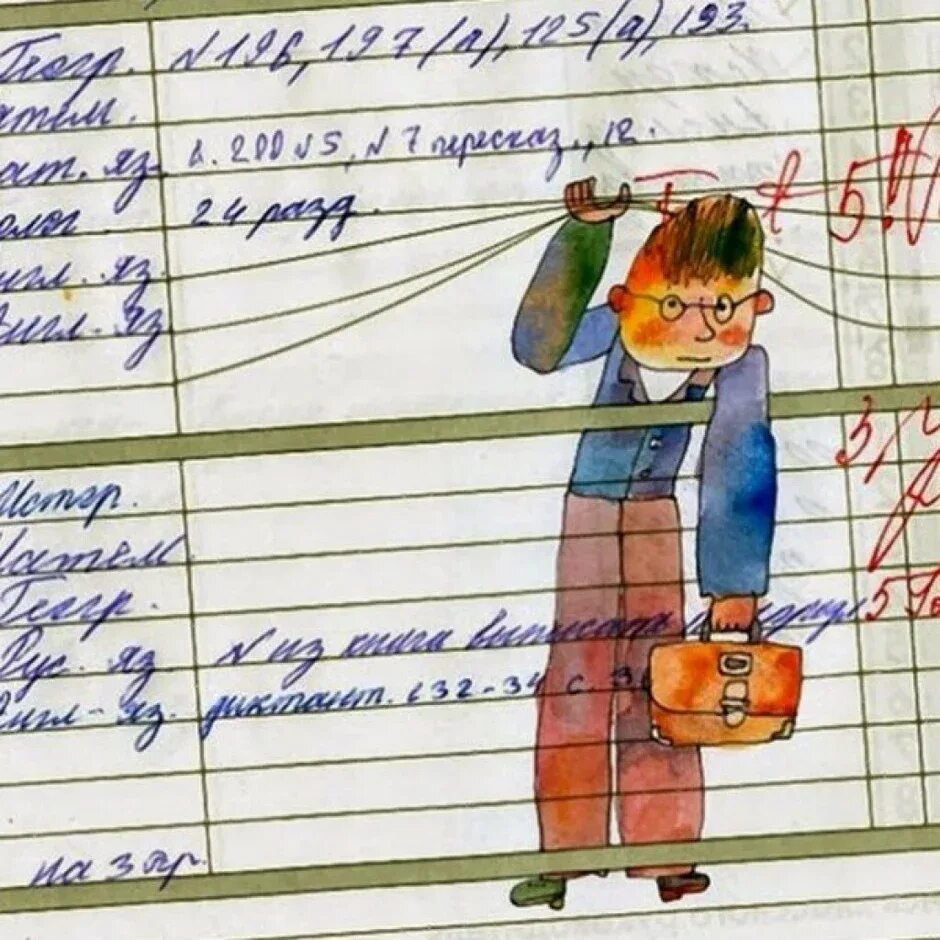 Геогр. №196, 197(а), 125(а), 193.
атем.
ат. яз. с. 200 №5, №7 пересказ., 12.
олог. 24 разд.
нгл. яз. 5
Англ. яз
Истор. 3
Матем
Геогр.
Рус. яз № из книги выписать 5
Англ-яз. диктант. с 32-34 с.
на 3 гр.